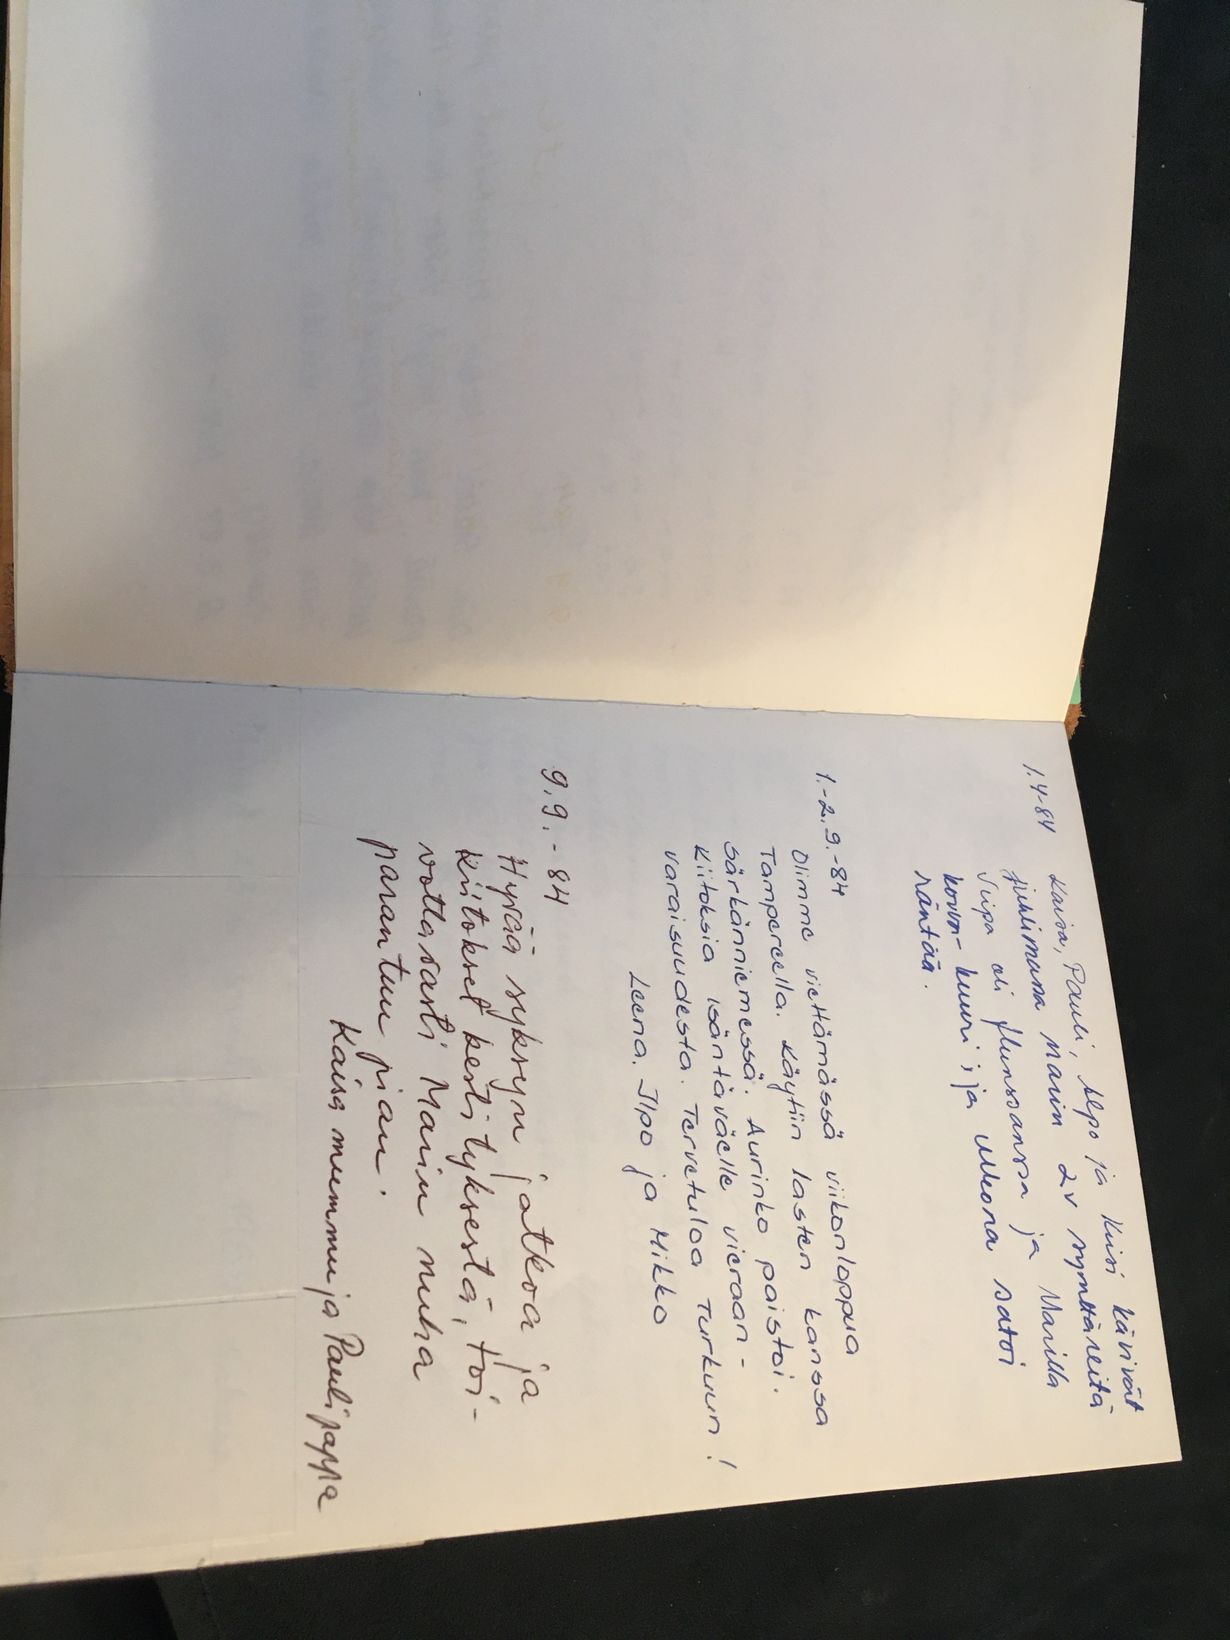 1.4-84 Kaisa, Pauli, Alpo ja Kirsi kävivät
juhlimassa Marin 2v synttäreitä
Viipa oli flunssansa ja Marilla
korva-kuuri, ja ulkona satoi
räntää.
1.-2.9.-84
Olimme viettämässä viikonloppua
Tampereella. Käytiin lasten kanssa
Särkänniemessä. Aurinko paistoi.
Kiitoksia isäntäväelle vieraan-
varaisuudesta. Tervetuloa Turkuun!
Leena, Ilpo ja Mikko
9.9.-84
Hyvää syksyn jatkoa ja
kiitokset kestityksestä, toi-
vottavasti Marin nuha
parantuu pian.
Kaisa mummu ja Pauli pappa